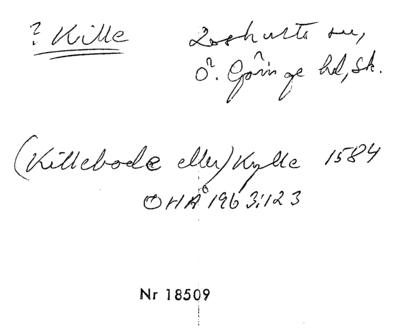 ? Kille Loshults sn,
Ö. Göinge hd, Sk.
(Killebode eller) Kylle 1584
OHÅ 1963:123
Nr 18509